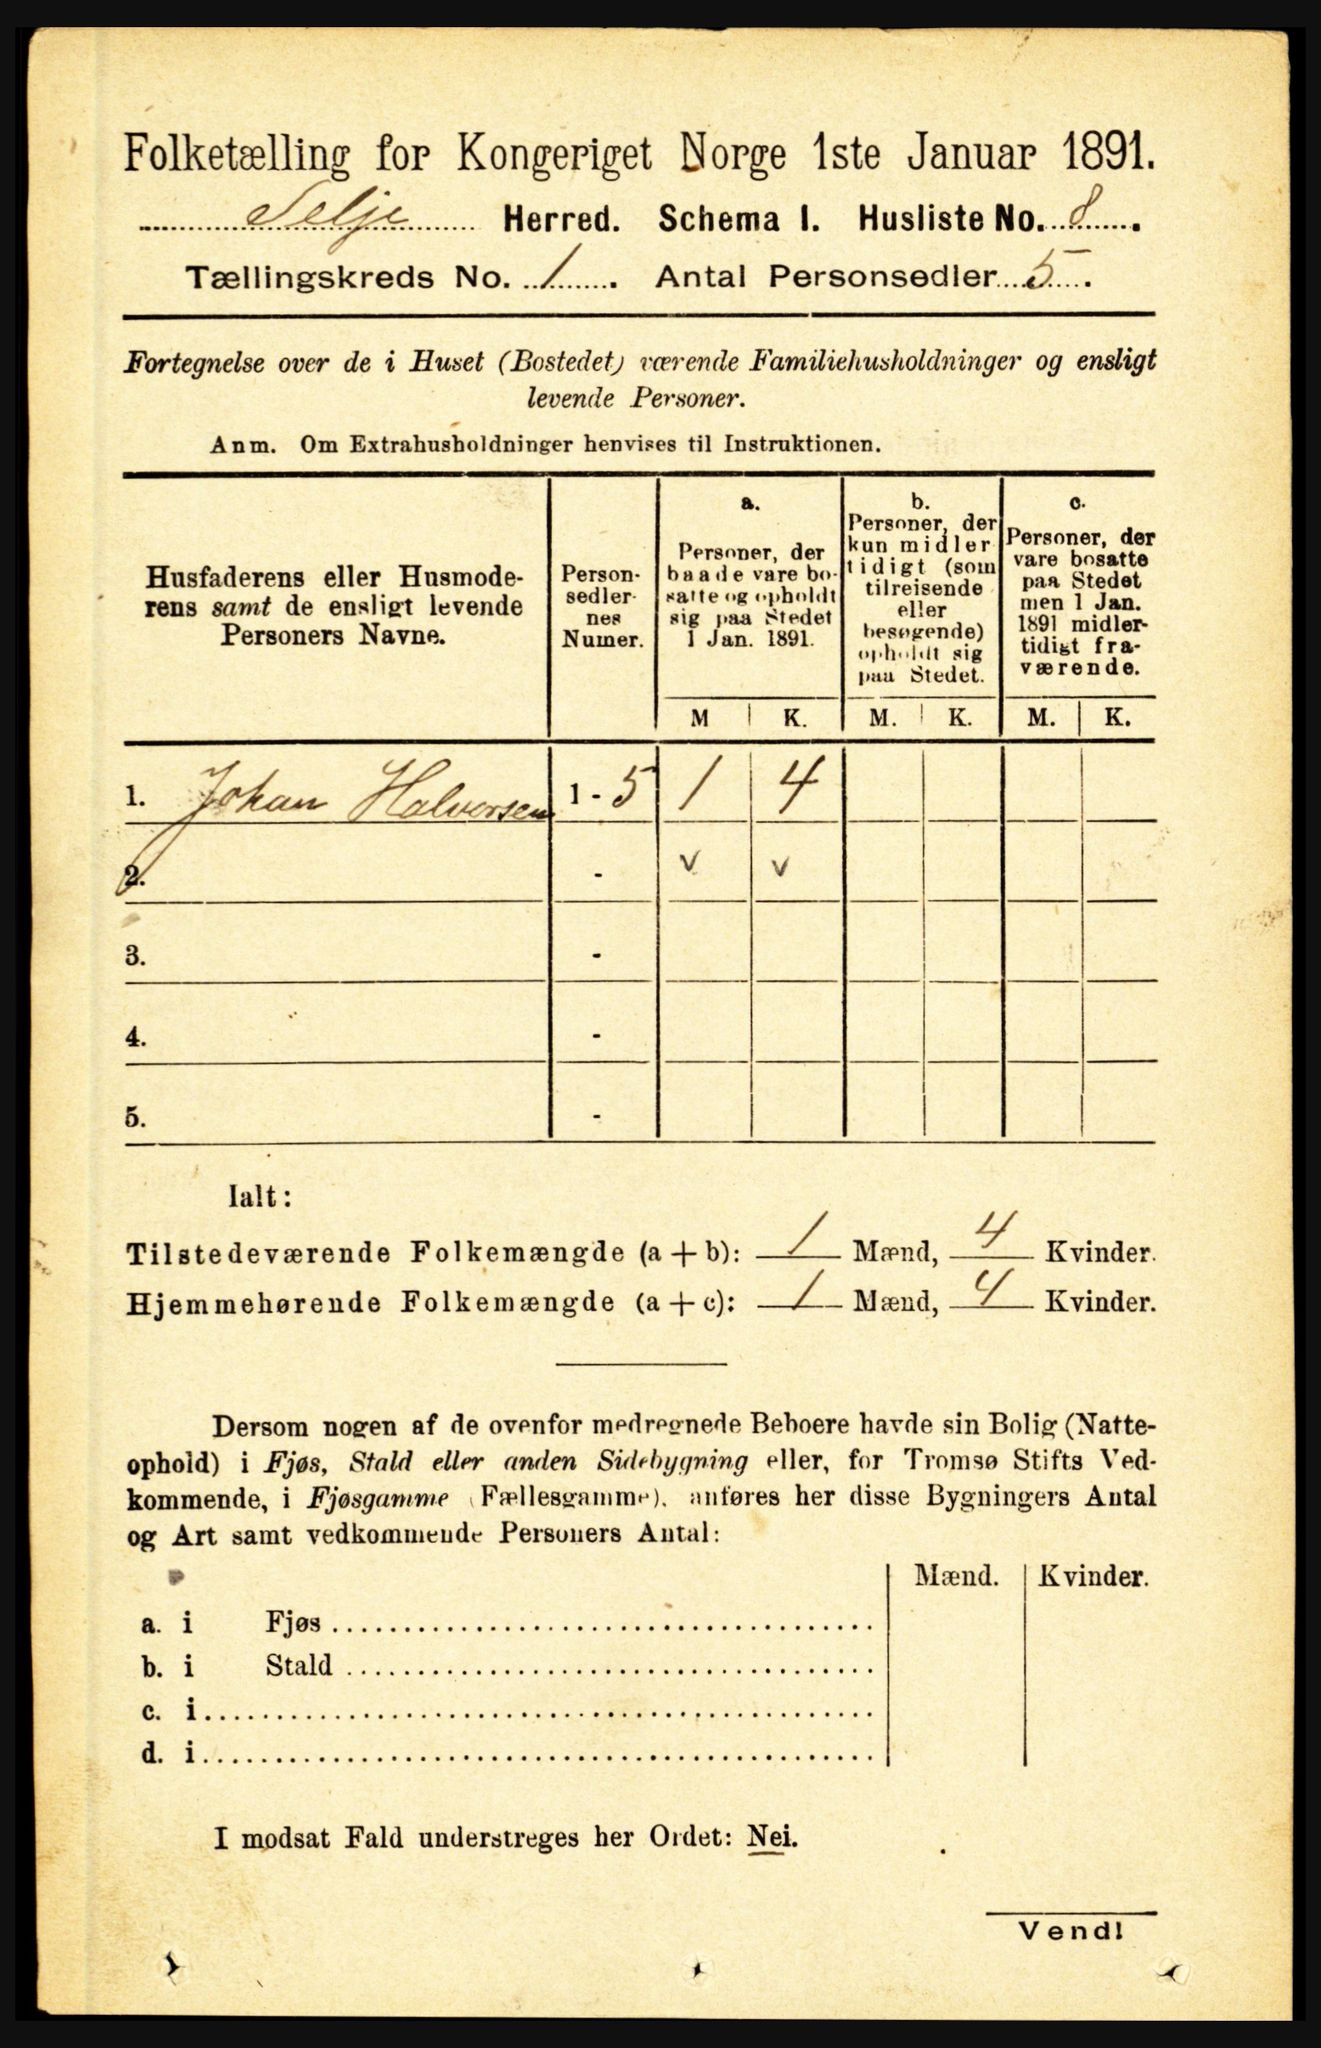 Folketælling for Kongeriget Norge 1ste Januar 1891.
Selje Herred. Schema I. Husliste No. 8.
Tællingskreds No. 1. Antal Personsedler 5.
Fortegnelse over de i Huset (Bostedet) værende Familiehusholdninger og ensligt
levende Personer.
Anm. Om Extrahusholdninger henvises til Instruktionen.
Husfaderens eller Husmode-
rens samt de ensligt levende
Personers Navne.
Person-
sedler-
nes
Numer.
a.
Personer, der
baade vare bo-
satte og opholdt
sig paa Stedet
1 Jan. 1891.
b.
Personer, der
kun midler
tidigt (som
tilreisende
eller
besøgende)
opholdt sig
paa Stedet.
c.
Personer, der
vare bosatte
paa Stedet
men 1 Jan.
1891 midler-
tidigt fra-
værende.
M K. M. K. M. K.
1. Johan Halvorsen 1 - 5 1 4
2. - v v
3. -
4. -
5. -
Ialt:
Tilstedeværende Folkemængde (a + b): 1 Mænd, 4 Kvinder.
Hjemmehørende Folkemængde (a + c): 1 Mænd, 4 Kvinder.
Dersom nogen af de ovenfor medregnede Beboere havde sin Bolig (Natte-
ophold) i Fjøs, Stald eller anden Sidebygning eller, for Tromsø Stifts Ved-
kommende, i Fjøsgamme (Fællesgamme), anføres her disse Bygningers Antal
og Art samt vedkommende Personers Antal:
Mænd. Kvinder.
a. i Fjøs
b. i Stald
c. i
d. i
I modsat Fald understreges her Ordet: Nei.
Vend!